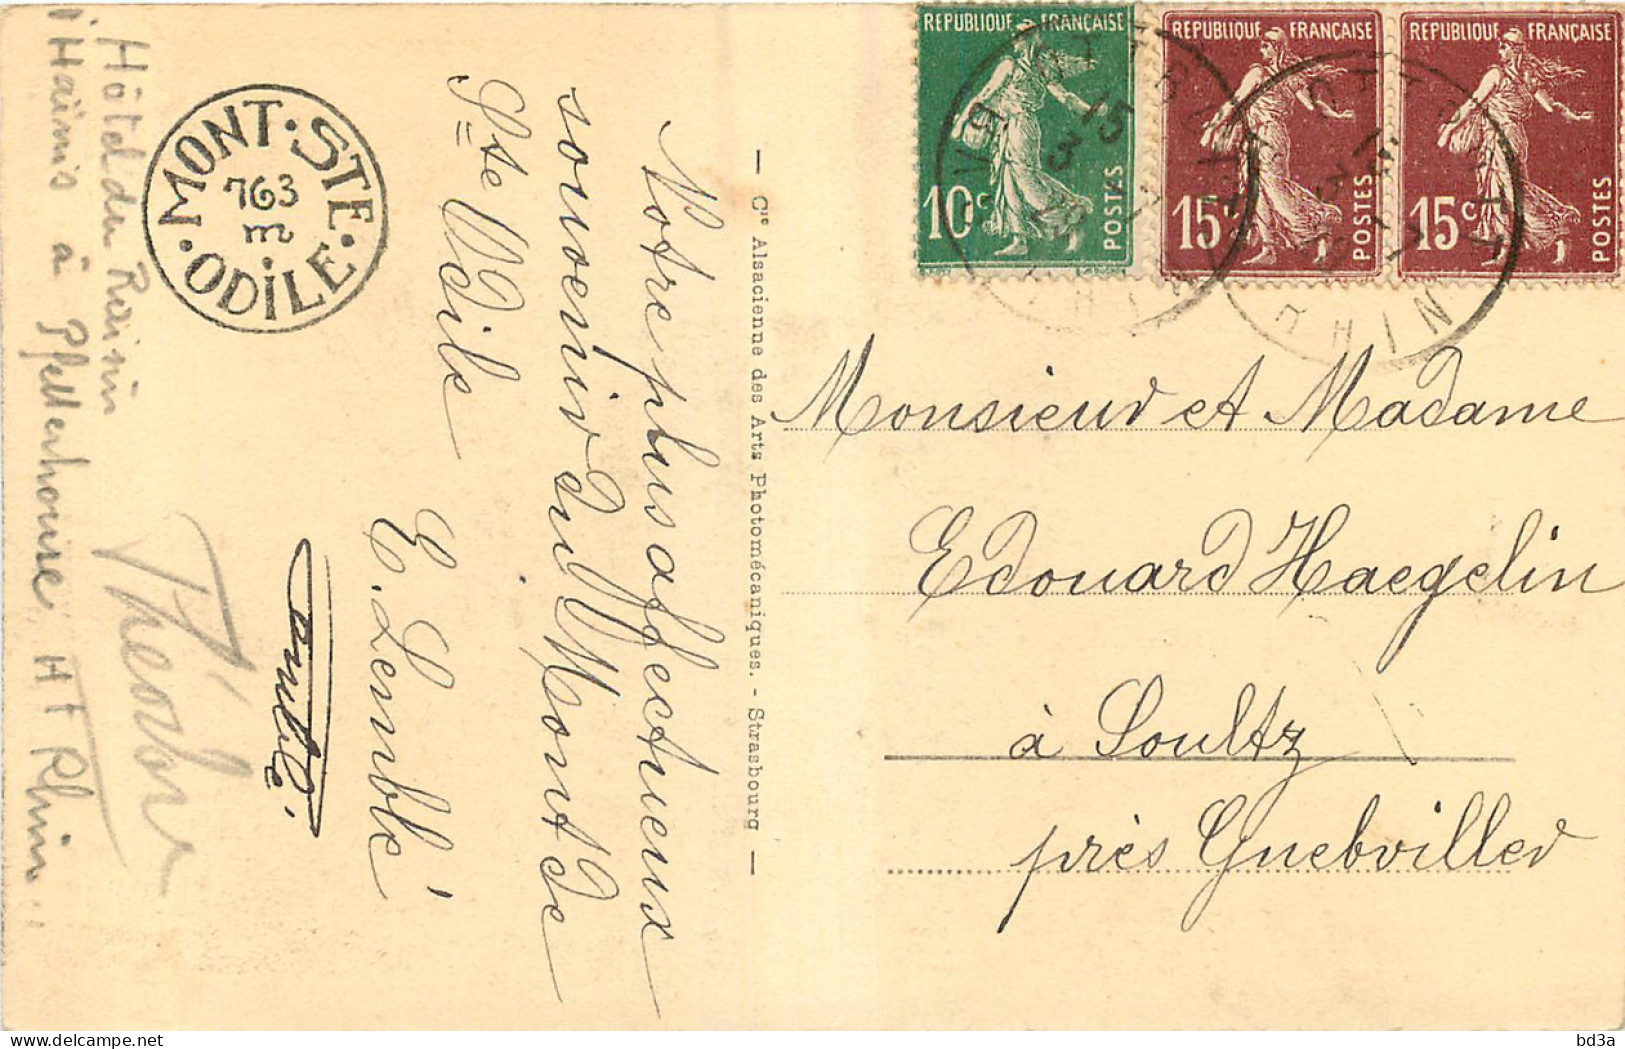 Hôtel du Raisin
à Pfetterhouse HT Rhin
MONT·STE·ODILE·
763
m
Notre plus affectueux
souvenir du Mont de
Ste Odile
E. Lemblé
— Cie Alsacienne des Arts Photomécaniques. - Strasbourg —
REPUBLIQUE FRANÇAISE
10c
POSTES
REPUBLIQUE FRANÇAISE
15c
POSTES
REPUBLIQUE FRANÇAISE
15c
POSTES
15
3
Monsieur et Madame
Edouard Haegelin
à Soultz
près Guebviller
bd3a